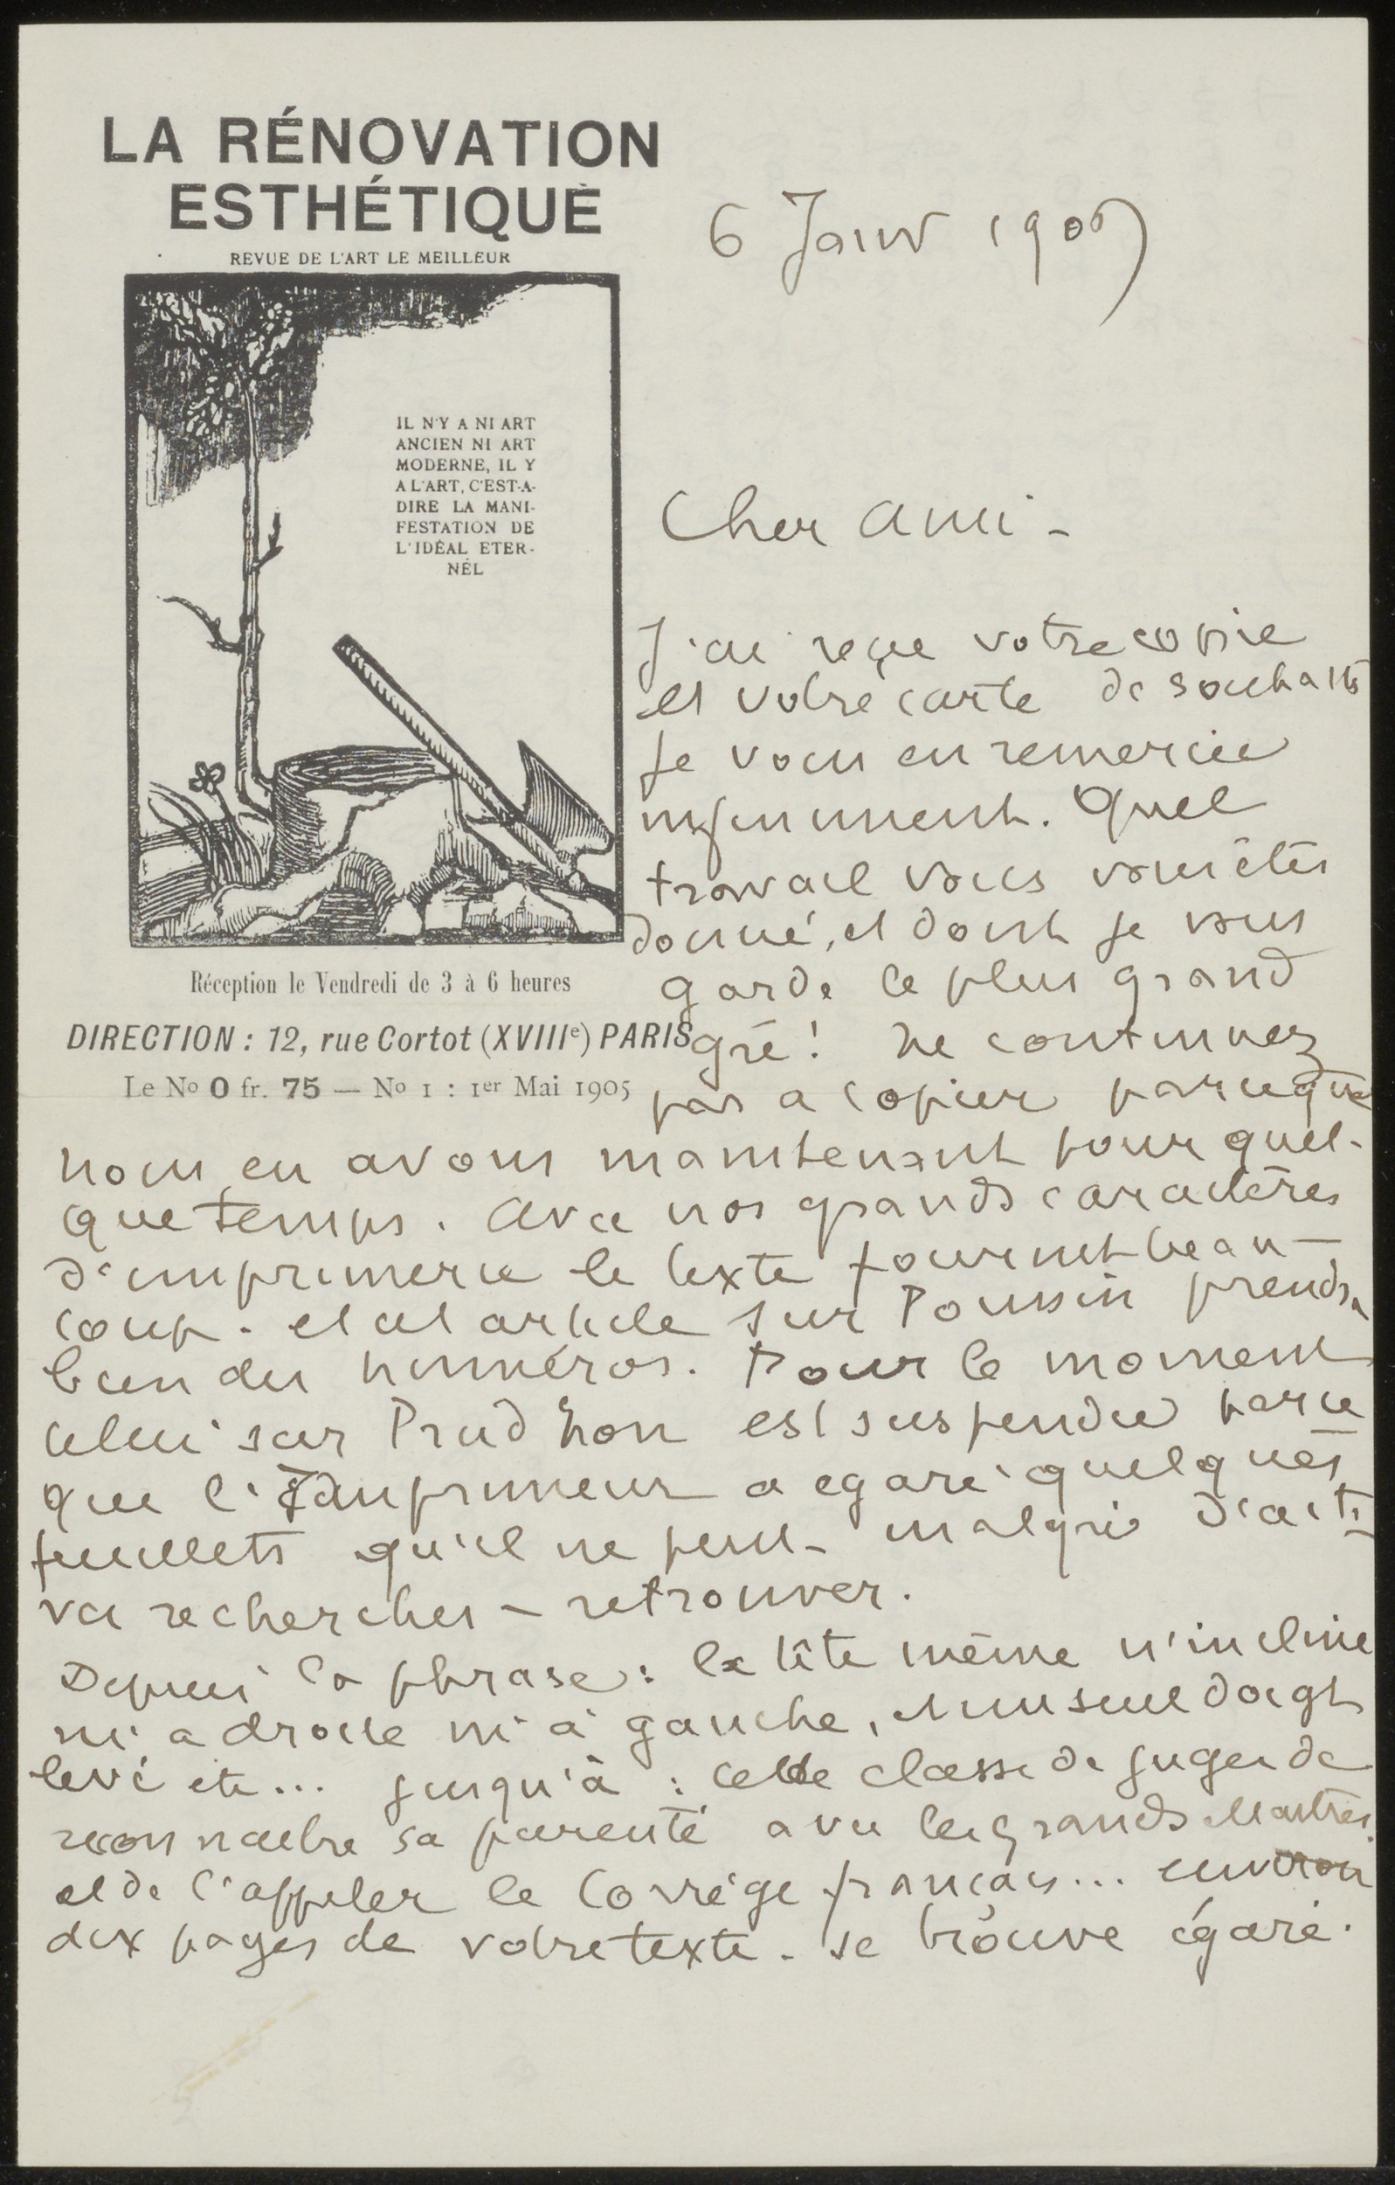 LA RÉNOVATION
ESTHÉTIQUE
REVUE DE L'ART LE MEILLEUR
IL N'Y A NI ART
ANCIEN NI ART
MODERNE, IL Y
A L'ART, C'EST-A-
DIRE LA MANI-
FESTATION DE
L'IDÉAL ETER-
NÉL
Réception le Vendredi de 3 à 6 heures
DIRECTION : 12, rue Cortot (XVIIIe) PARIS
Le No 0 fr. 75 — No 1 : 1er Mai 1905
6 Janv
Cher ami -
J'ai reçue votre copie
et votre carte de souhaits
Je vous en remercie
infiniment. Quel
travail vous vous êtes
donné, et dont je vous
garde le plus grand
gré! Ne continuez
pas a copier parceque
nous en avons maintenant pour quel-
que temps. Avec nos grands caractères
d'imprimerie le texte fournit beau-
coup. et cet article sur Poussin prendra
bien des numéros. Pour le moment
celui sur Prud'hon est suspendu parce
que l'imprimeur a egaré quelques
feuillets qu'il ne peut - malgré d'acti-
ves recherches - retrouver.
Depuis la phrase : la tête même n'incline
ni a droite ni à gauche, un seul doigt
levé etc... jusqu'à : cette classe de juges de
reconnaitre sa parenté avec les grands Maitres
et de l'appeler le Corrége français... environ
dix pages de votre texte - se trouve égaré.